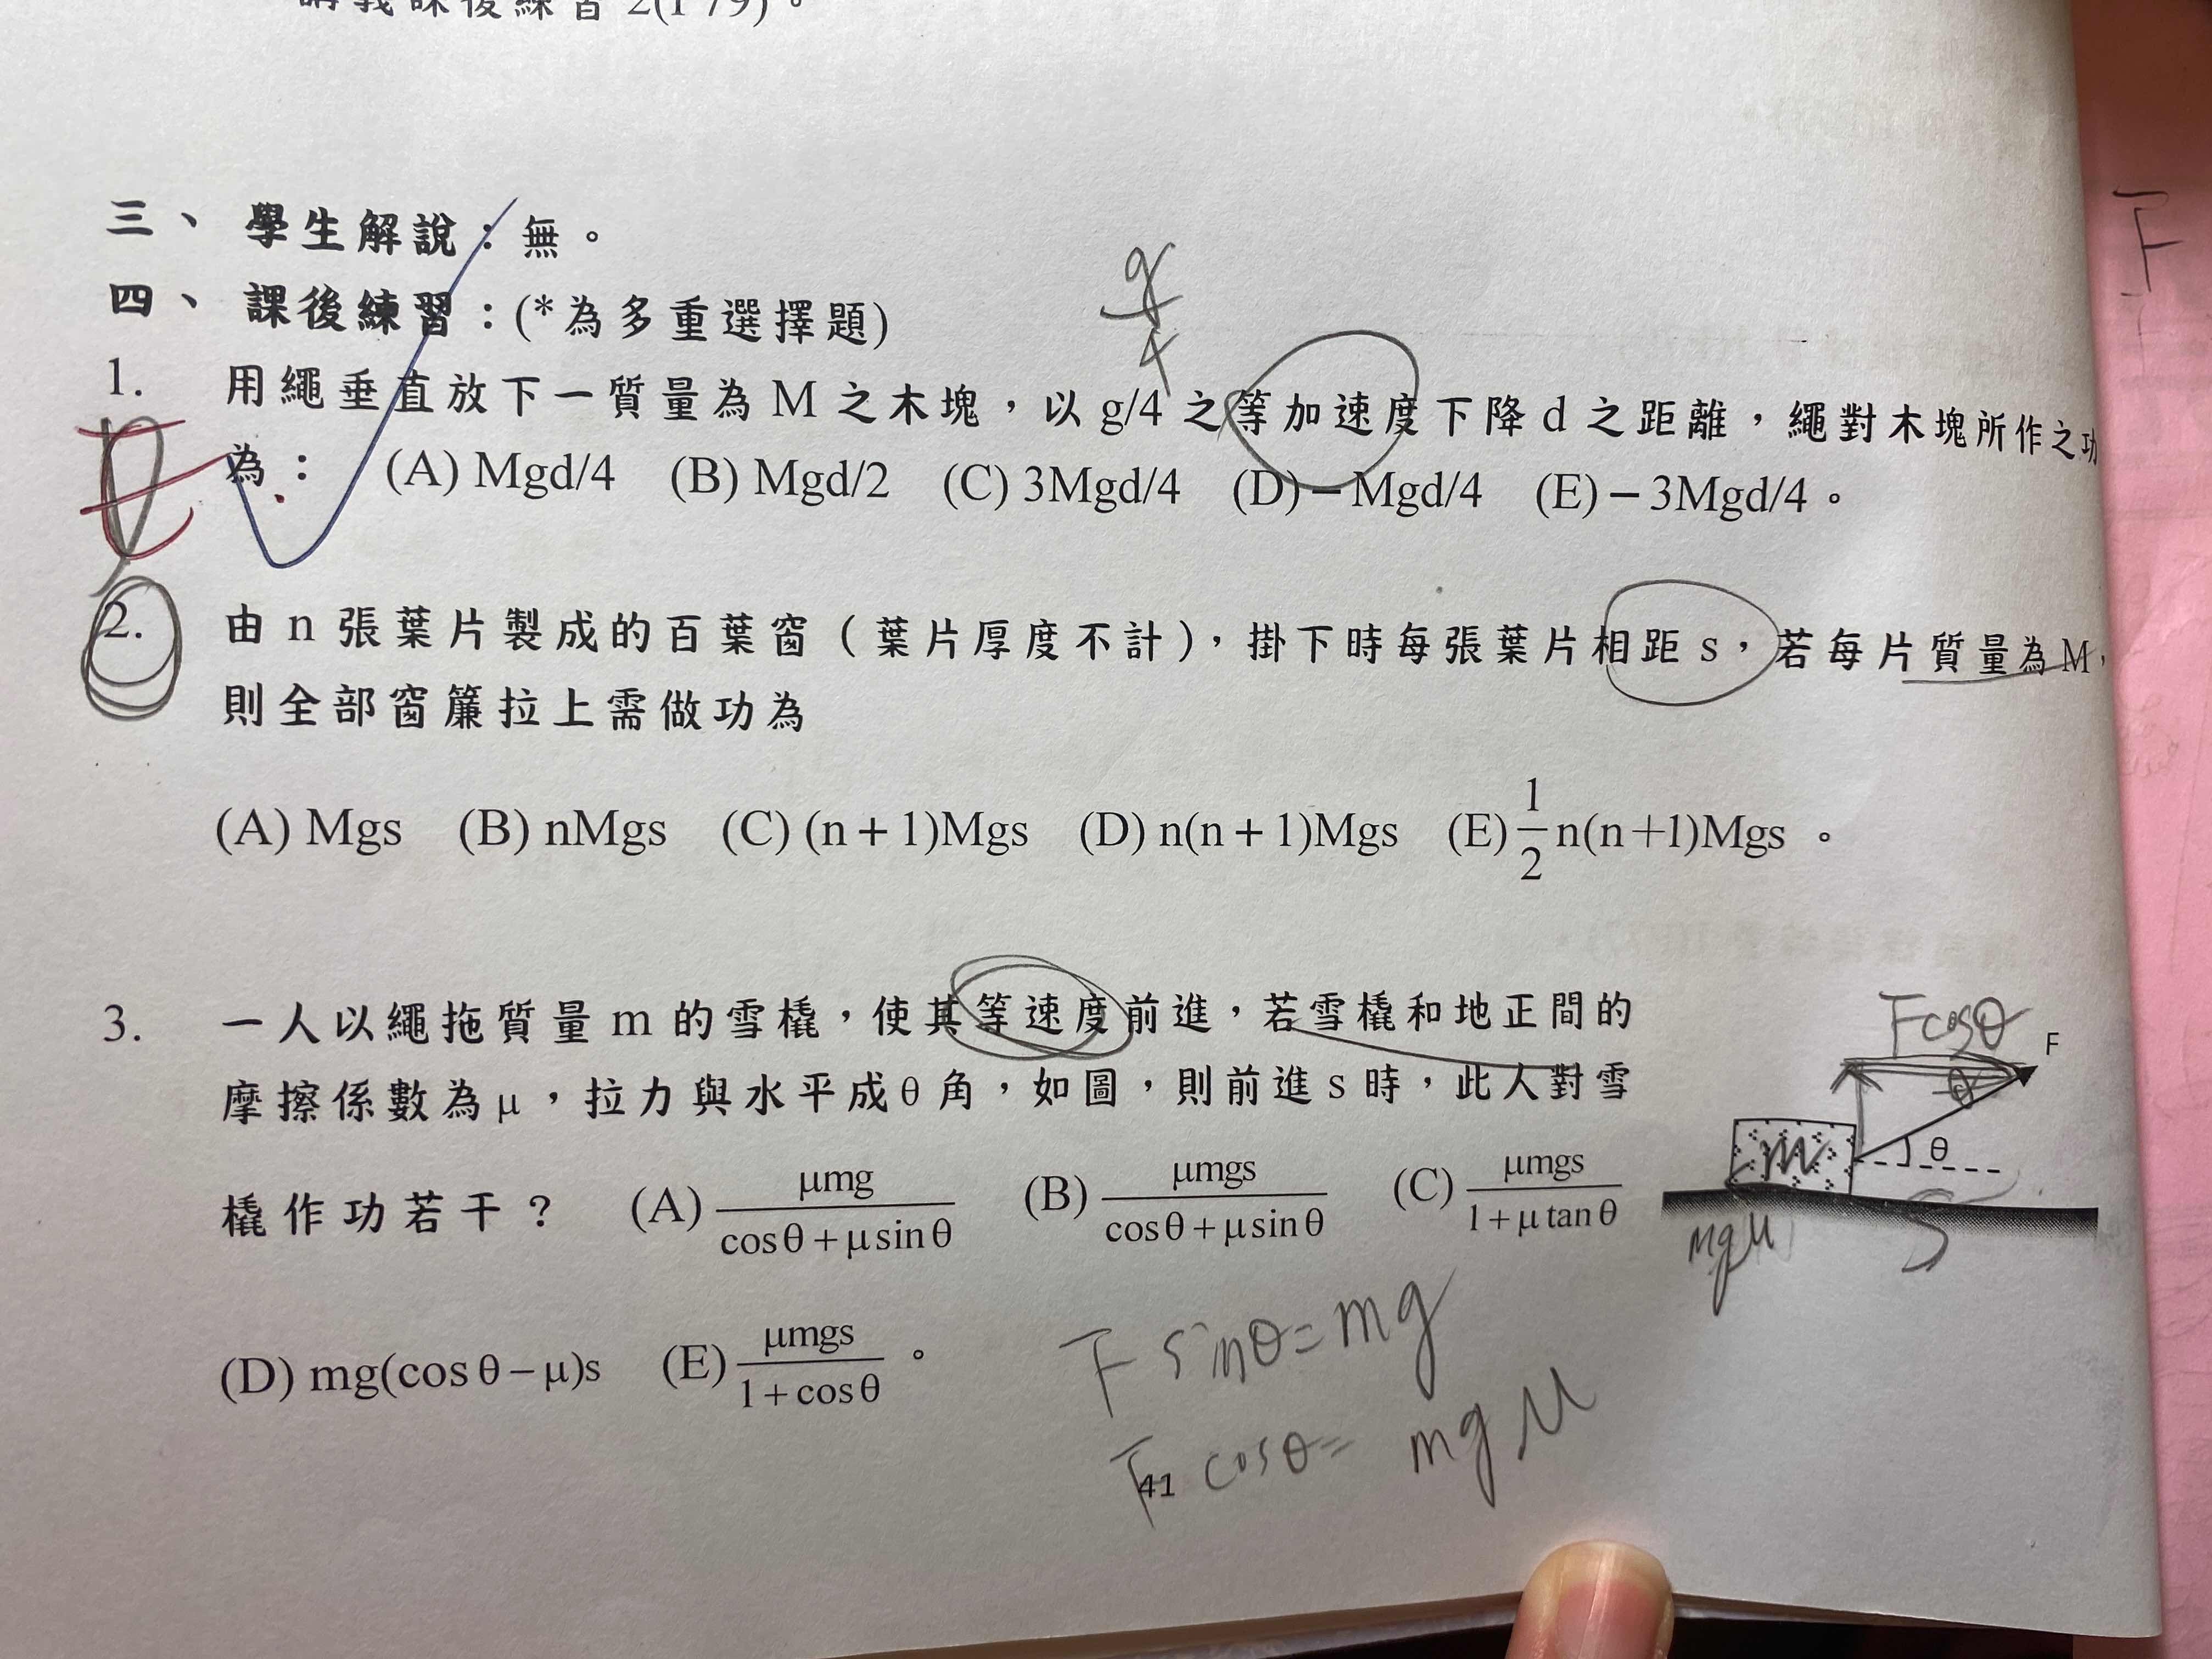 講義課後練習 2(P79)。
三、學生解說：無。
四、課後練習：(*為多重選擇題)
g/4
1. 用繩垂直放下一質量為 M 之木塊，以 g/4 之等加速度下降 d 之距離，繩對木塊所作之功
為： (A) Mgd/4 (B) Mgd/2 (C) 3Mgd/4 (D) − Mgd/4 (E) − 3Mgd/4。
E
2. 由 n 張葉片製成的百葉窗（葉片厚度不計），掛下時每張葉片相距 s，若每片質量為 M，
則全部窗簾拉上需做功為
(A) Mgs (B) nMgs (C) (n + 1)Mgs (D) n(n + 1)Mgs (E) 1/2 n(n+1)Mgs。
3. 一人以繩拖質量 m 的雪橇，使其等速度前進，若雪橇和地正間的
摩擦係數為μ，拉力與水平成θ角，如圖，則前進 s 時，此人對雪
橇作功若干？ (A) μmg/(cosθ+μsinθ) (B) μmgs/(cosθ+μsinθ) (C) μmgs/(1+μtanθ)
(D) mg(cosθ−μ)s (E) μmgs/(1+cosθ)。
Fcosθ
F
θ
m
θ
mgμ
S
F sinθ=mg
F cosθ= mgμ
41
F